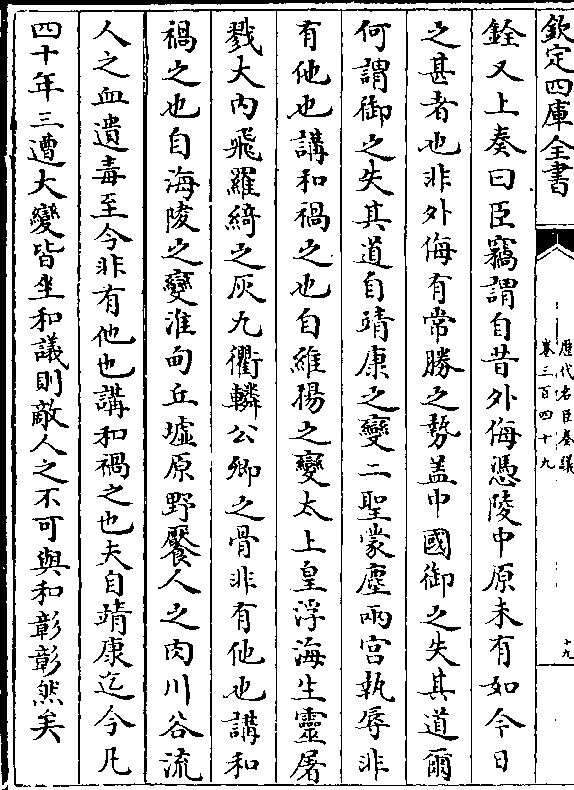 欽定四庫全書
歷代名臣奏議
卷三百四十九
十九
銓又上奏曰臣竊謂自昔外侮憑陵中原未有如今日
之甚者也非外侮有常勝之勢蓋中國御之失其道爾
何謂御之失其道自靖康之變二聖蒙塵兩宮執辱非
有他也講和禍之也自維揚之變太上皇浮海生靈屠
戮大內飛羅綺之灰九衢轔公卿之骨非有他也講和
禍之也自海陵之變淮甸丘墟原野饜人之肉川谷流
人之血遺毒至今非有他也講和禍之也夫自靖康迄今凡
四十年三遭大變皆坐和議則敵人之不可與和彰彰然矣